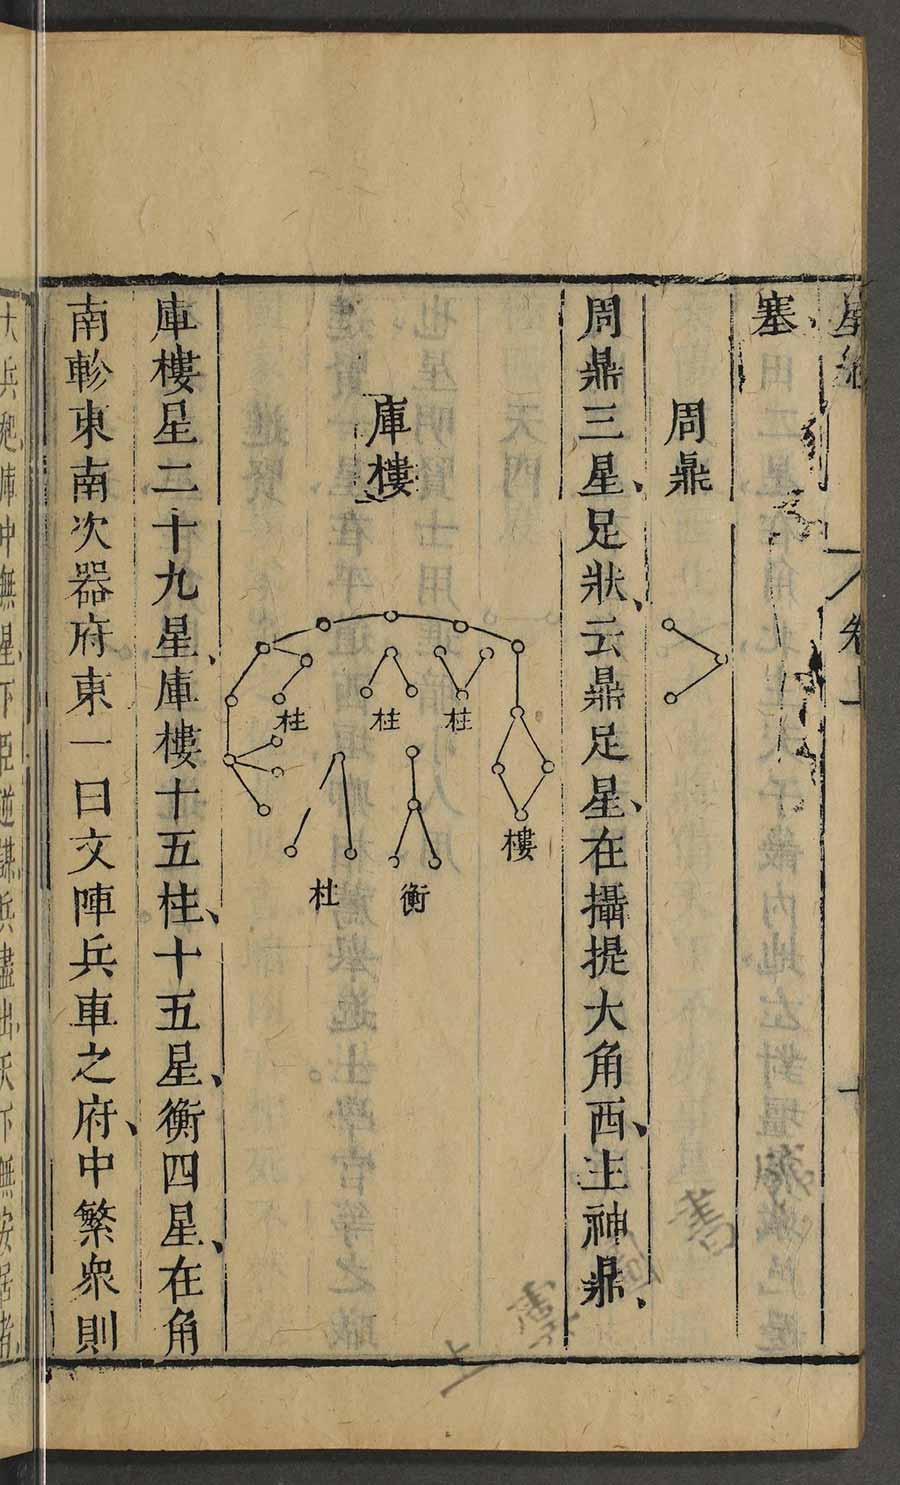 星經
卷上
塞
周鼎
周鼎三星、足狀、云鼎足星、在攝提大角西、主神鼎、
庫樓
柱
柱
柱
樓
衡
杜
庫樓星二十九星、庫樓十五柱、十五星、衡四星、在角
南軫東南次器府東一曰文陣兵車之府、中繁衆則
大兵起庫中無星下臣逆謀兵盡出天下無安居者